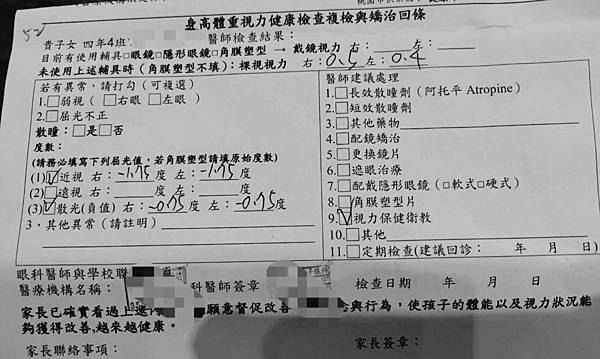 52
身高體重視力健康檢查複檢與矯治回條
貴子女 四年4班 醫師檢查結果：
目前有使用輔具□眼鏡□隱形眼鏡□角膜塑型 → 戴鏡視力 右： 左：
未使用上述輔具時（角膜塑型不填）：裸視視力 右：0.5 左：0.4
若有異常，請打勾（可複選）
1.□弱視（□右眼 □左眼）
2.□屈光不正
散瞳：□是□否
度數：
(請務必填寫下列屈光值，若角膜塑型請填原始度數)
(1)☑近視 右：-1.75度 左：-1.75度
(2)□遠視 右： 度 左： 度
(3)☑散光(負值) 右：-0.75度 左：-0.75度
3、其他異常（請註明）
醫師建議處理
1.□長效散瞳劑（阿托平 Atropine）
2.□短效散瞳劑
3.□其他藥物
4.□配鏡矯治
5.□更換鏡片
6.□遮眼治療
7.□配戴隱形眼鏡（□軟式□硬式）
8.□角膜塑型片
9.☑視力保健衛教
10.□其他
11.□定期檢查(建議回診： 年 月 日)
眼科醫師與學校聯
醫療機構名稱： 科醫師簽章 檢查日期 年 月 日
家長已確實看過上述 願意督促改善 與行為，使孩子的體能以及視力狀況能
夠獲得改善,越來越健康。
家長聯絡事項： 家長簽章：